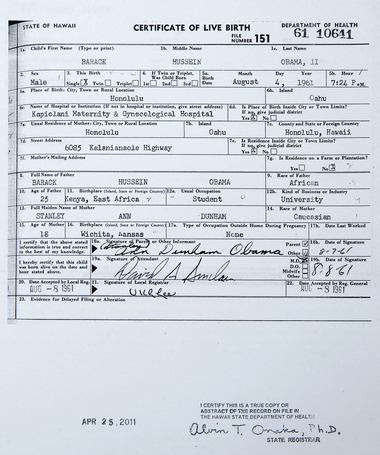 STATE OF HAWAII CERTIFICATE OF LIVE BIRTH DEPARTMENT OF HEALTH
FILE NUMBER 151 61 10641
1a. Child's First Name (Type or print) 1b. Middle Name 1c. Last Name
BARACK HUSSEIN OBAMA, II
2. Sex 3. This Birth 4. If Twin or Triplet, Was Child Born 5a. Birth Date Month Day Year 5b. Hour
Male Single Twin Triplet 1st 2nd 3rd August 4, 1961 7:24 P.M.
6a. Place of Birth: City, Town or Rural Location 6b. Island
Honolulu Oahu
6c. Name of Hospital or Institution (If not in hospital or institution, give street address) 6d. Is Place of Birth Inside City or Town Limits? If no, give judicial district
Kapiolani Maternity & Gynecological Hospital Yes No
7a. Usual Residence of Mother: City, Town or Rural Location 7b. Island 7c. County and State or Foreign Country
Honolulu Oahu Honolulu, Hawaii
7d. Street Address 7e. Is Residence Inside City or Town Limits? If no, give judicial district
6085 Kalanianaole Highway Yes No
7f. Mother's Mailing Address 7g. Is Residence on a Farm or Plantation?
Yes No
8. Full Name of Father 9. Race of Father
BARACK HUSSEIN OBAMA African
10. Age of Father 11. Birthplace (Island, State or Foreign Country) 12a. Usual Occupation 12b. Kind of Business or Industry
25 Kenya, East Africa Student University
13. Full Maiden Name of Mother 14. Race of Mother
STANLEY ANN DUNHAM Caucasian
15. Age of Mother 16. Birthplace (Island, State or Foreign Country) 17a. Type of Occupation Outside Home During Pregnancy 17b. Date Last Worked
18 Wichita, Kansas None
I certify that the above stated information is true and correct to the best of my knowledge. 18a. Signature of Parent or Other Informant Parent Other 18b. Date of Signature
(Stanley) Ann Dunham Obama 8-7-61
I hereby certify that this child was born alive on the date and hour stated above. 19a. Signature of Attendant M.D. D.O. Midwife Other 19b. Date of Signature
David A Sinclair 8-8-61
20. Date Accepted by Local Reg. 21. Signature of Local Registrar 22. Date Accepted by Reg. General
AUG -8 1961 U K Lee AUG -8 1961
23. Evidence for Delayed Filing or Alteration
APR 25, 2011
I CERTIFY THIS IS A TRUE COPY OR
ABSTRACT OF THE RECORD ON FILE IN
THE HAWAII STATE DEPARTMENT OF HEALTH
Alvin T. Onaka, Ph.D.
STATE REGISTRAR